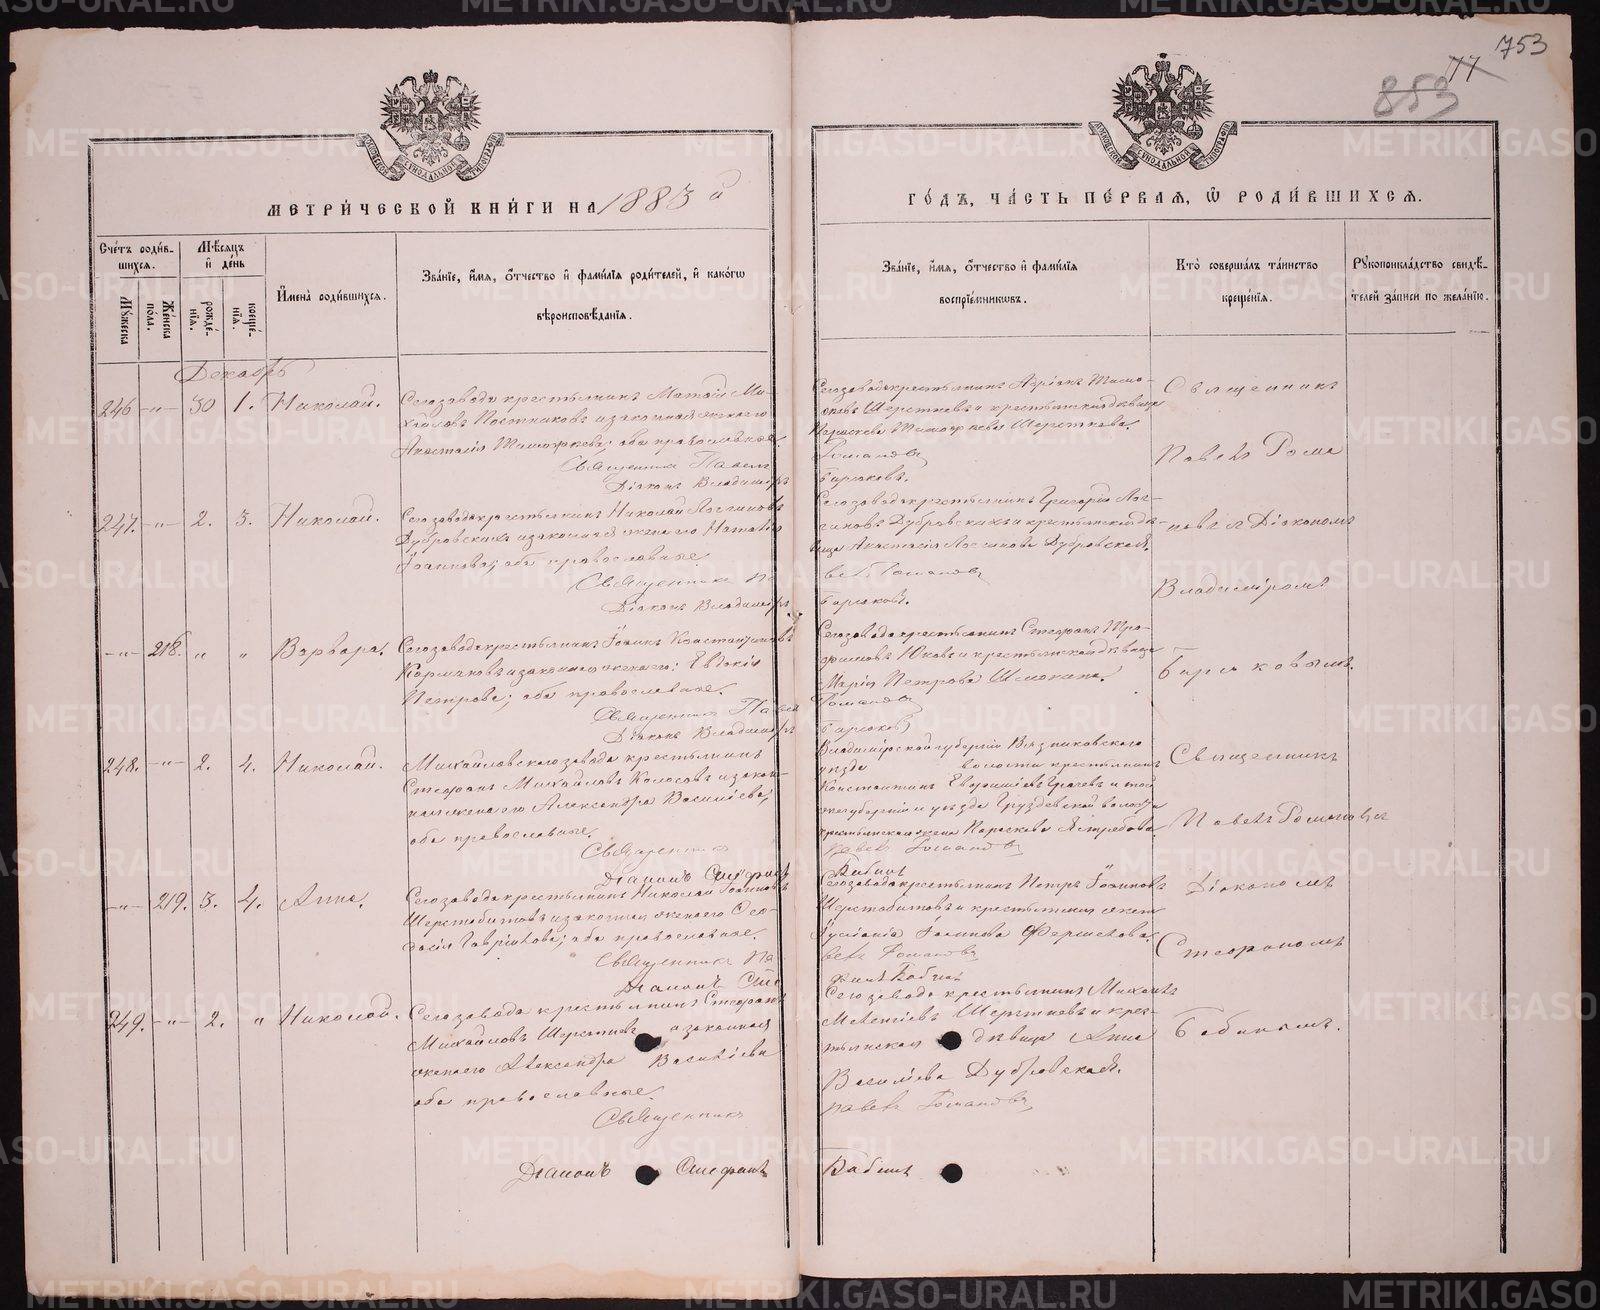 753
77
853
МЕТРИ́ЧЕСКОЙ КНИ́ГИ НА 1883 й
ГО́ДЪ, ЧА́СТЬ ПЕ́РВАЯ, Ѡ РОДИ́ВШИХСЯ.
Сче́тъ роди́в-
шихся.
Мꙋ́жеска
Же́нска
по́ла.
Мѣ́сяцъ
и҆ де́нь
рожде́-
нїя.
креще́-
нїя.
И҆мена̀ роди́вшихся.
Зва́нїе, и҆́мя, ѻ҆́тчество и҆ фами́лїя роди́телей, и҆ како́гѡ
вѣроисповѣ́данїя.
Зва́нїе, и҆́мя, ѻ҆́тчество и҆ фами́лїя
воспрїе́мниковъ.
Кто̀ соверша́лъ та́инство
креще́нїя.
Рꙋкоприкла́дство свидѣ́-
телей за́писи по жела́нїю.
Декабрь
246 -"- 30 1. Николай.
Сегозавода крестьянинъ Матѳій Ми-
хайловъ Постниковъ и законная жена его
Анастасія Тимоѳеева; оба православные.
Священникъ Павелъ
Діаконъ Владиміръ
Сегозавода крестьянинъ Адріанъ Тимо-
ѳеевъ Шерстневъ и крестьянская дѣвица
Тимоѳеева Шерстнева.
Романовъ
Бирюковъ.
Священникъ
Павелъ Рома
247. -"- 2. 3. Николай.
Сегозавода крестьянинъ Николай Логиновъ
Дубровскихъ и законная жена его Наталія
Іоаннова; оба православные.
Священникъ Па
Діаконъ Владиміръ
Сегозавода крестьянинъ Григорій Лог-
иновъ Дубровскихъ и крестьянская дѣ-
вица Анастасія Логинова Дубровская.
велъ Романовъ
Бирюковъ.
новъ съ Діакономъ
Владиміромъ
-"- 218. " " Варвара.
Сегозавода крестьянинъ Іоаннъ Константиновъ
Кормановъ и законная жена его: Евдокія
Петрова; оба православные.
Священникъ Павелъ
Діаконъ Владиміръ
Сегозавода крестьянинъ Стефанъ Тро-
фимовъ Юковъ и крестьянская дѣвица
Марія Петрова
Романовъ
Бирюковъ
Бирюковымъ.
248. -"- 2. 4. Николай.
Михайловскаго завода крестьянинъ
Стефанъ Михайловъ Колосовъ и закон-
ная жена его Александра Васильева;
оба православные.
Священникъ
Діаконъ Стефанъ
Владимірской губерніи Вязниковскаго
уѣзда волости крестьянинъ
Константинъ Грачевъ и той
же губерніи и уѣзда Груздевской волости
крестьянская жена Параскева Ястребова
Павелъ Романовъ
Бабинъ
Священникъ
Павелъ Романовъ
-"- 219. 3. 4. Анна.
Сегозавода крестьянинъ Николай Іоанновъ
Шерстобитовъ и законная жена его Ѳео-
досія Гаврилова; оба православные.
Священникъ Па
Діаконъ Сте
Сегозавода крестьянинъ Петръ Іоанновъ
Шерстобитовъ и крестьянская жена
Іуліанія Іоаннова
велъ Романовъ
фанъ Бабинъ
Діакономъ
Стефаномъ
249. -"- 2. " Николай.
Сегозавода крестьянинъ Стефанъ
Михайловъ Шерстневъ и законная
жена его Александра Васильева
оба православные.
Священникъ
Діаконъ Стефанъ
Сегозавода крестьянинъ Михаилъ
Шерстневъ и крес-
тьянская дѣвица Анна
Васильева Дубровская.
Павелъ Романовъ
Бабинъ
Бабинымъ.
METRIKI.GASO-URAL.RU